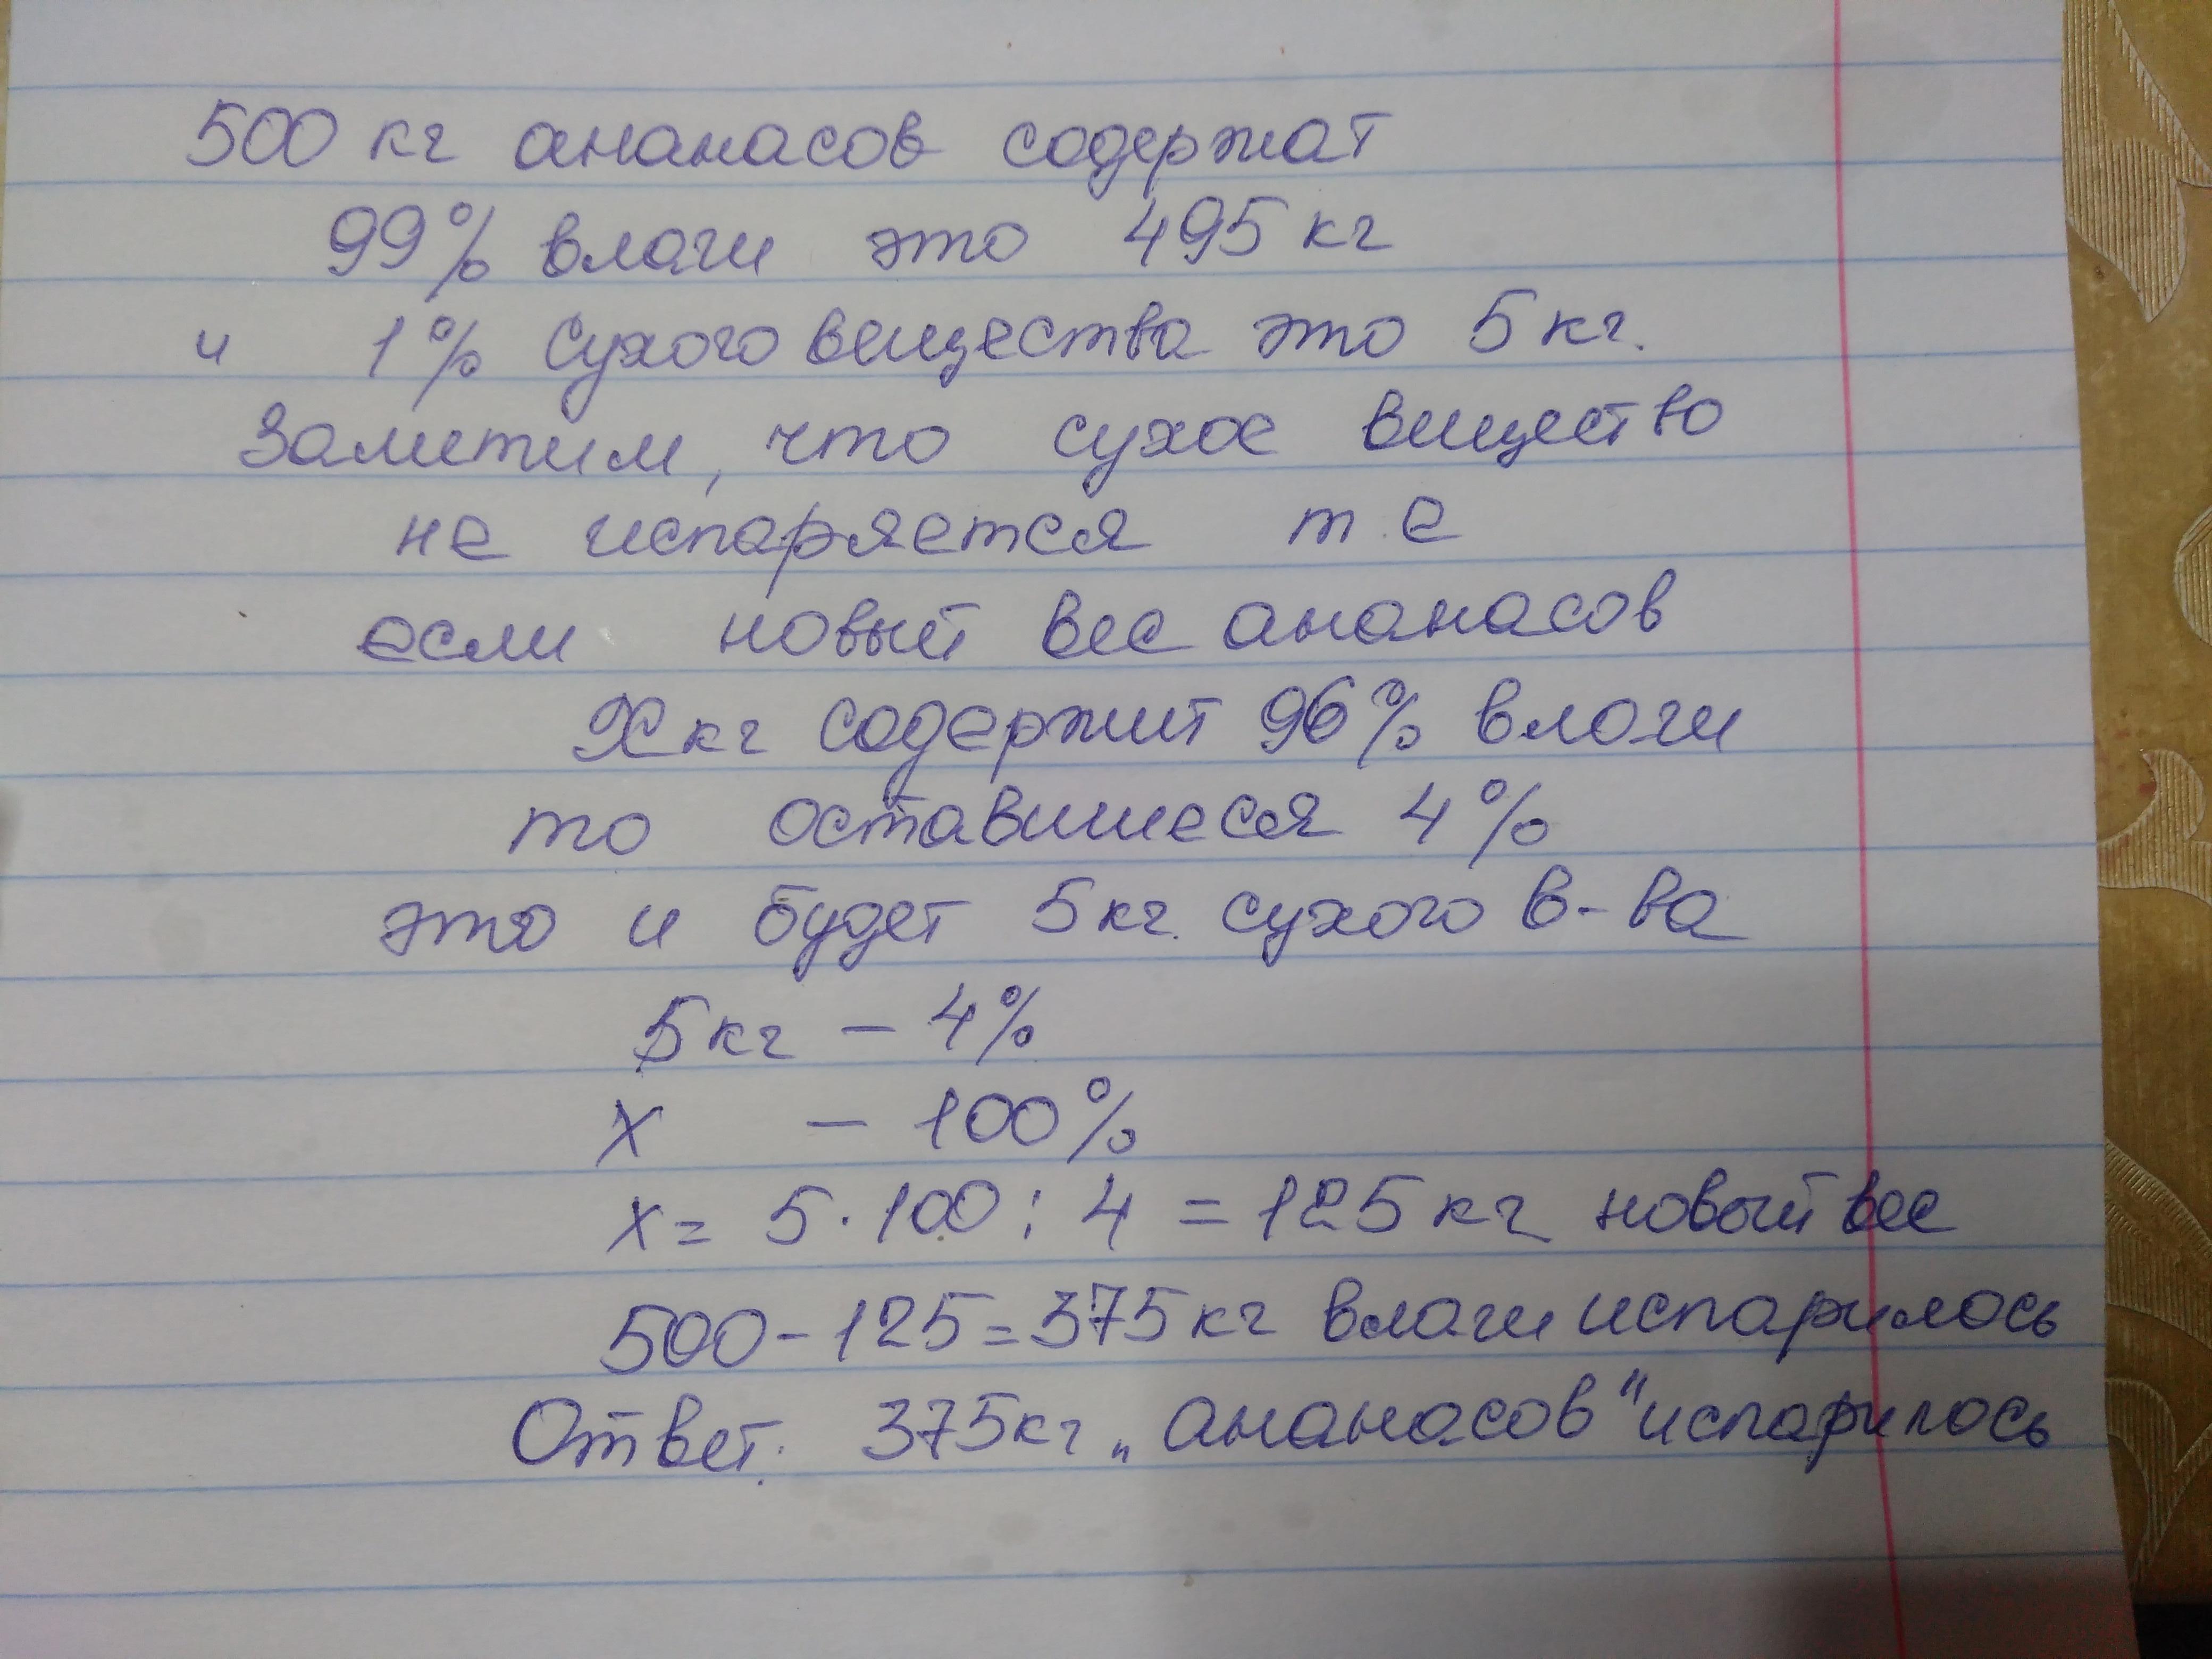 500 кг ананасов содержат
99% влаги это 495 кг
и 1% сухого вещества это 5 кг.
Заметим, что сухое вещество
не испаряется т.е
если новый вес ананасов
X кг содержит 96% влаги
то оставшиеся 4%
это и будет 5 кг. сухого в-ва
5 кг – 4%
x – 100%
x = 5 · 100 : 4 = 125 кг новый вес
500 – 125 = 375 кг влаги испарилось
Ответ. 375 кг „ананасов“ испарилось